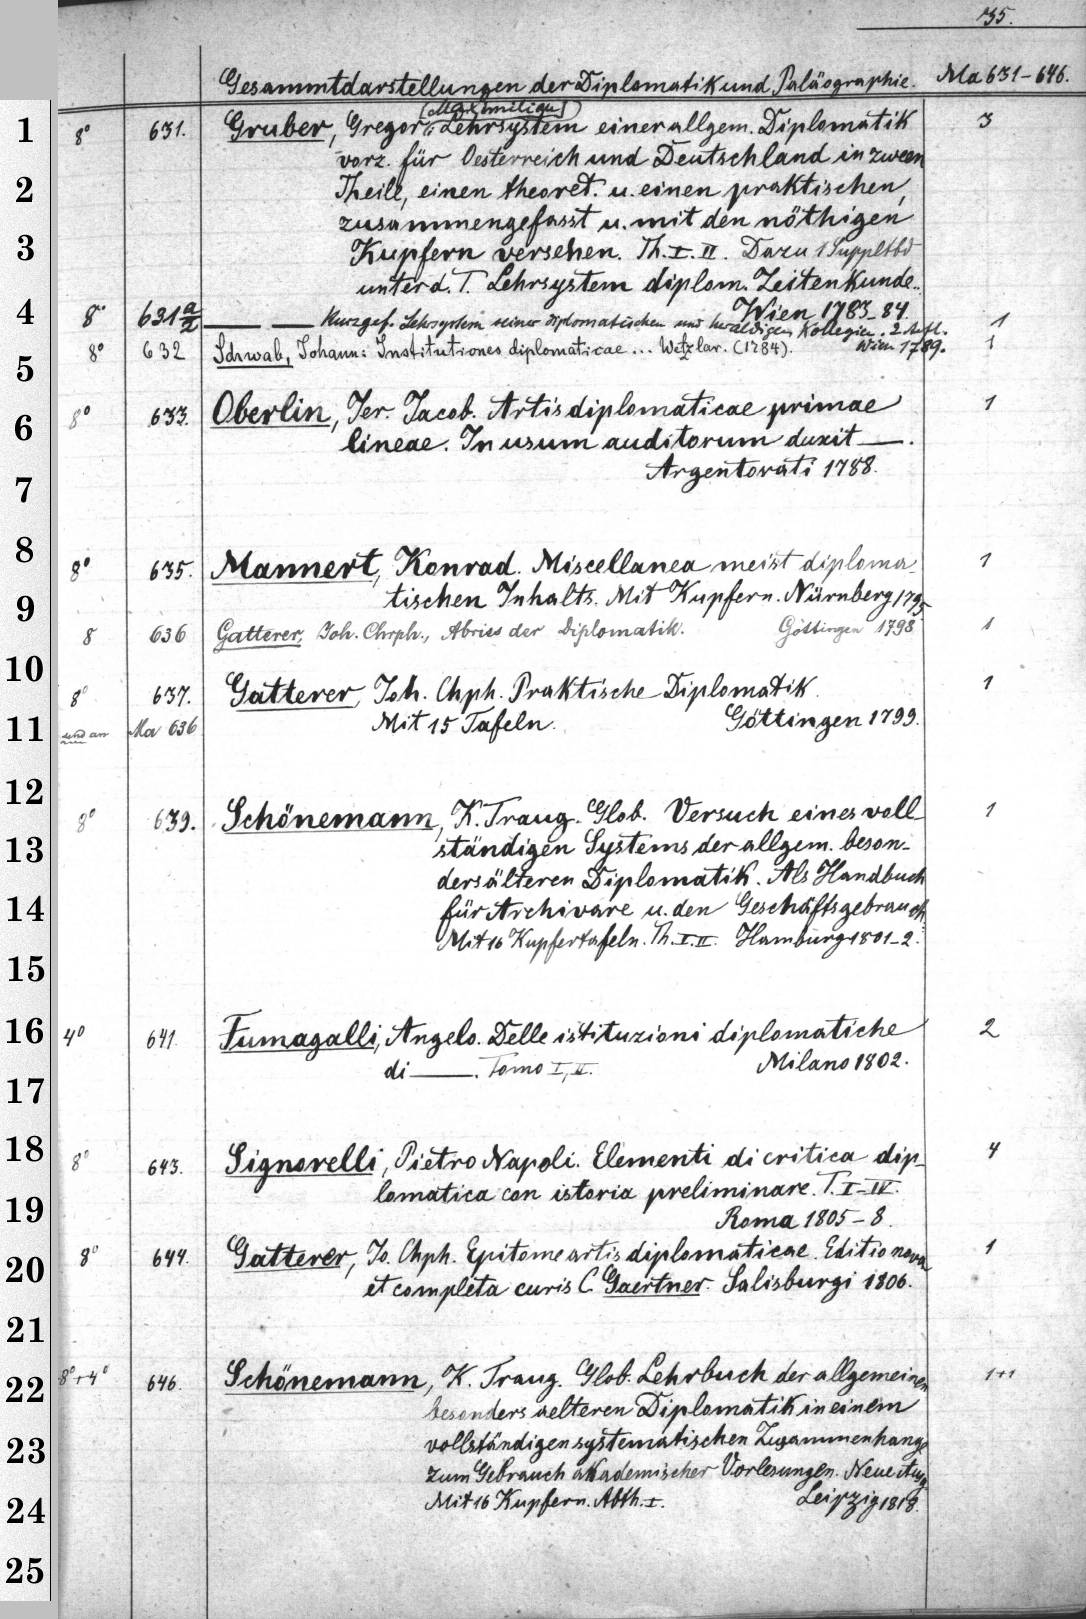 35.
Gesammtdarstellungen der Diplomatik und Paläographie. Ma 631-646.
1 8° 631. Gruber, Gregor (Maximilian) Lehrsystem einer allgem. Diplomatik 3
vorz. für Oesterreich und Deutschland in zween
2 Theile, einen theoret. u. einen praktischen,
zusammengefasst u. mit den nöthigen
3 Kupfern versehen. Th. I. II. Dazu 1 Suppltbd
unter d. T. Lehrsystem diplom. Zeitenkunde..
Wien 1783-84.
4 8° 631 a/2 — — Kurzgef. Lehrsystem seiner diplomatischen und heraldigen Kollegien. 2. Aufl. 1
Wien 1789.
5 8° 632 Schwab, Johann: Institutiones diplomaticae ... Wetzlar. (1784). 1
6 8° 633. Oberlin, Jer. Jacob. Artis diplomaticae primae 1
lineae. In usum auditorum duxit —.
7 Argentorati 1788.
8 8° 635. Mannert, Konrad. Miscellanea meist diploma- 1
9 tischen Inhalts. Mit Kupfern. Nürnberg 1795
8 636 Gatterer, Joh. Chrph., Abriss der Diplomatik. Göttingen 1798 1
10 8° 637. Gatterer, Joh. Chph. Praktische Diplomatik. 1
11 und an Ma 636 Mit 15 Tafeln. Göttingen 1799.
12 8° 639. Schönemann, K. Traug. Glob. Versuch eines voll- 1
13 ständigen Systems der allgem. beson-
ders älteren Diplomatik. Als Handbuch
14 für Archivare u. den Geschäftsgebrauch.
Mit 16 Kupfertafeln. Th. I. II. Hamburg 1801-2.
15
16 4° 641. Fumagalli, Angelo. Delle istituzioni diplomatiche 2
di —. Tomo I, II. Milano 1802.
17
18 8° 643. Signorelli, Pietro Napoli. Elementi di critica dip- 4
lomatica con istoria preliminare. T. I-IV.
19 Roma 1805-8.
20 8° 644. Gatterer, Jo. Chph. Epitome artis diplomaticae. Editio nova 1
et completa curis C. Gaertner. Salisburgi 1806.
21
22 8°+4° 646. Schönemann, K. Traug. Glob. Lehrbuch der allgemeinen 1+1
besonders aelteren Diplomatik in einem
23 vollständigen systematischen Zusammenhange
zum Gebrauch akademischer Vorlesungen. Neue Aug.
24 Mit 16 Kupfern. Abth. I. Leipzig 1818.
25